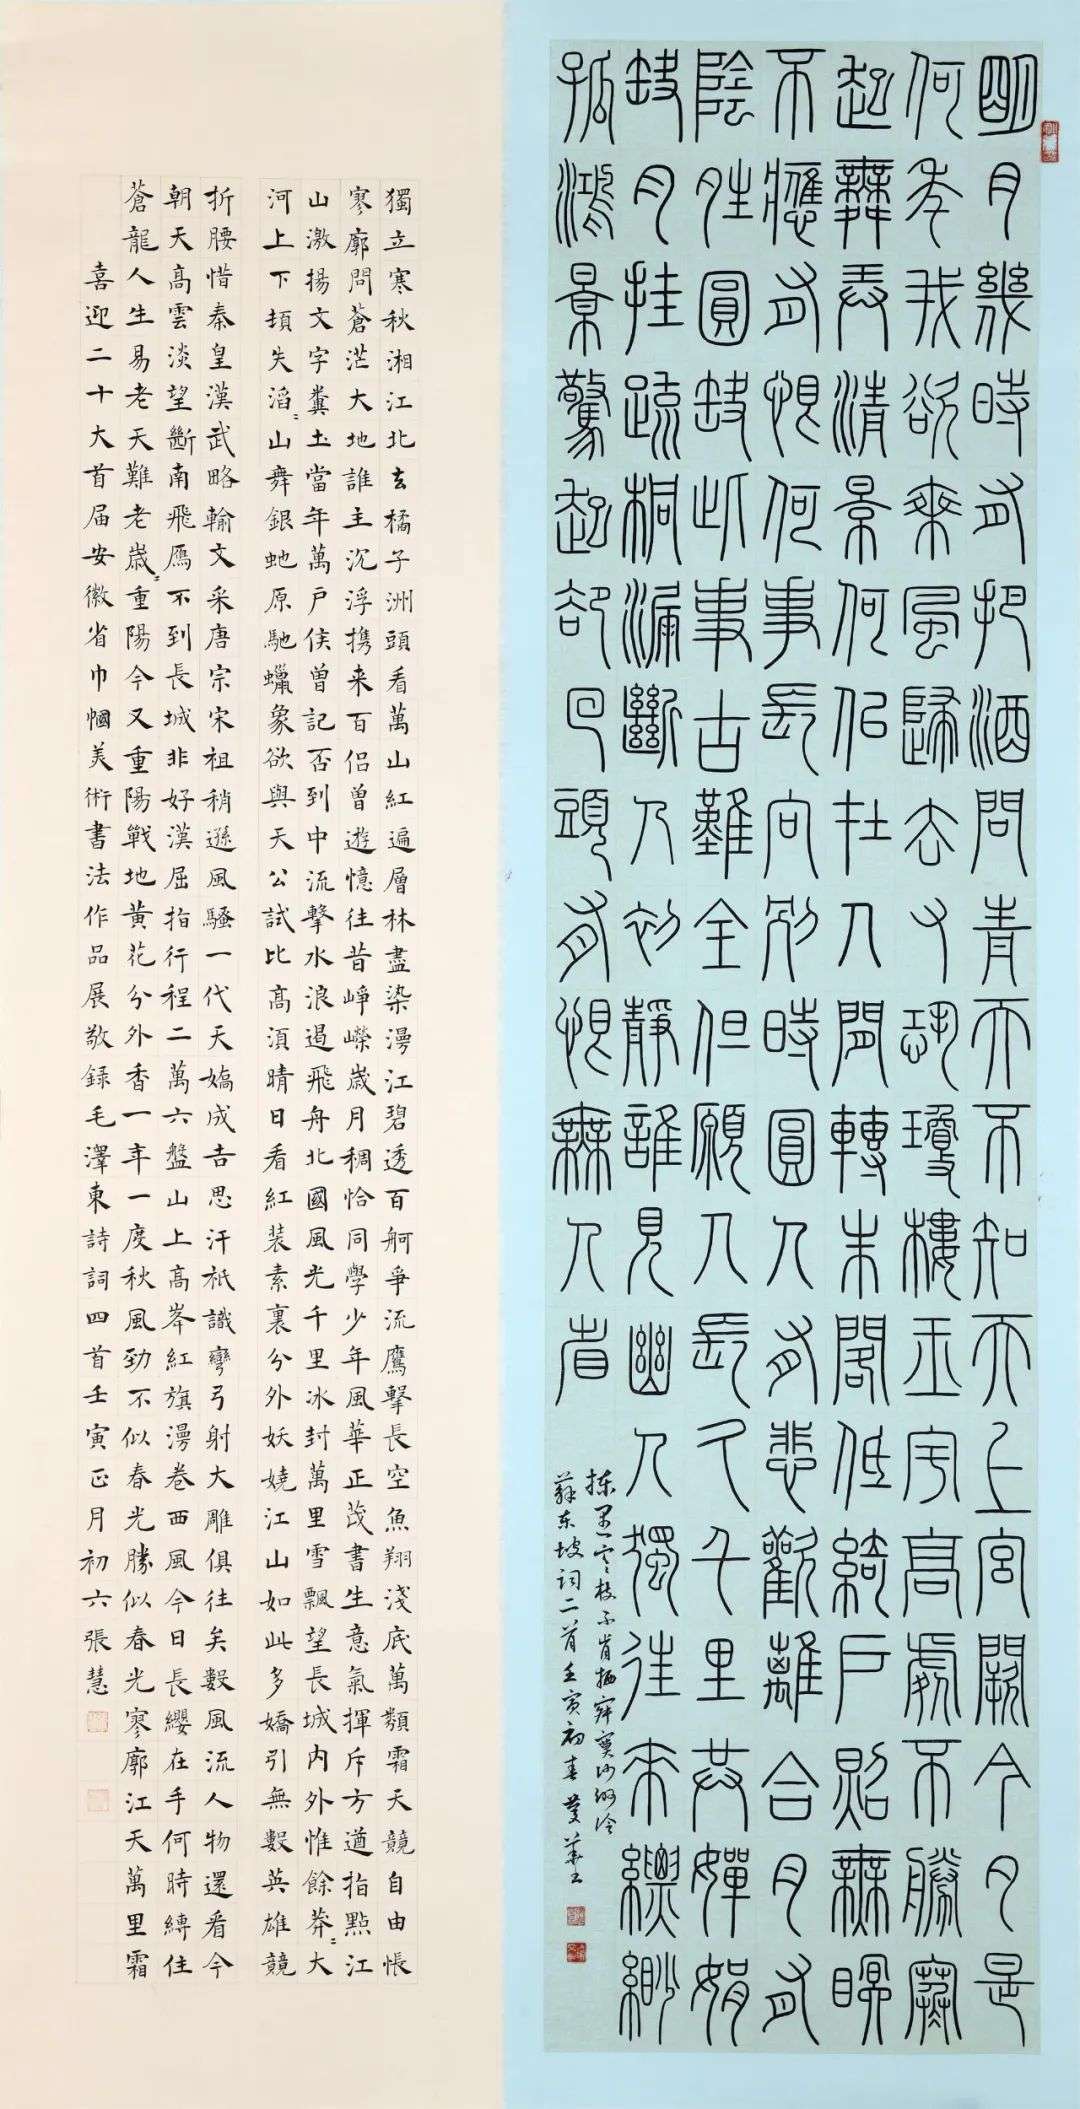 明月幾時有把酒問青天不知天上宮闕今夕是
何年我欲乘風歸去又恐瓊樓玉宇高處不勝寒
起舞弄清景何佀在人間轉朱閣低綺戶照無眠
不應有恨何事長向別時圓人有悲歡離合月有
陰晴圓缺此事古難全但願人長久千里共嬋娟
缺月挂疏桐漏斷人初靜誰見幽人獨往來縹緲
孤鴻景驚起卻回頭有恨無人省
揀盡寒枝不肯栖寂寞沙洲冷
蘇東坡詞二首壬寅初春
獨立寒秋湘江北去橘子洲頭看萬山紅遍層林盡染漫江碧透百舸爭流鷹擊長空魚翔淺底萬類霜天競自由悵
寥廓問蒼茫大地誰主沉浮携来百侣曾遊憶往昔崢嶸歲月稠恰同學少年風華正茂書生意氣揮斥方遒指點江
山激揚文字糞土當年萬戶侯曾記否到中流擊水浪遏飛舟北國風光千里冰封萬里雪飄望長城內外惟餘莽=大
河上下頓失滔=山舞銀蛇原馳蠟象欲與天公試比高須晴日看紅裝素裹分外妖嬈江山如此多嬌引無數英雄競
折腰惜秦皇漢武略輸文采唐宗宋祖稍遜風騷一代天嬌成吉思汗衹識彎弓射大雕俱往矣數風流人物還看今
朝天高雲淡望斷南飛鴈不到長城非好漢屈指行程二萬六盤山上高峰紅旗漫卷西風今日長纓在手何時縛住
蒼龍人生易老天難老歲=重陽今又重陽戰地黃花分外香一年一度秋風勁不似春光勝似春光寥廓江天萬里霜
喜迎二十大首届安徽省巾幗美術書法作品展敬録毛澤東詩詞四首壬寅正月初六張慧